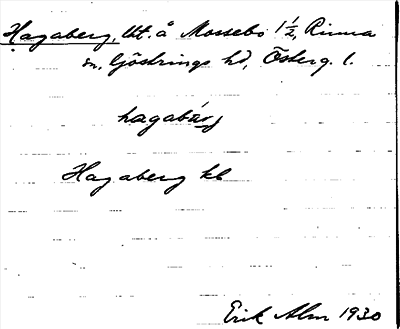 Hagaberg, lht. å Mossebo 1 1/2, Rinna
sn, Göstrings hd, Österg. l.
hagabärj
Hagaberg kb
Erik Alm 1930